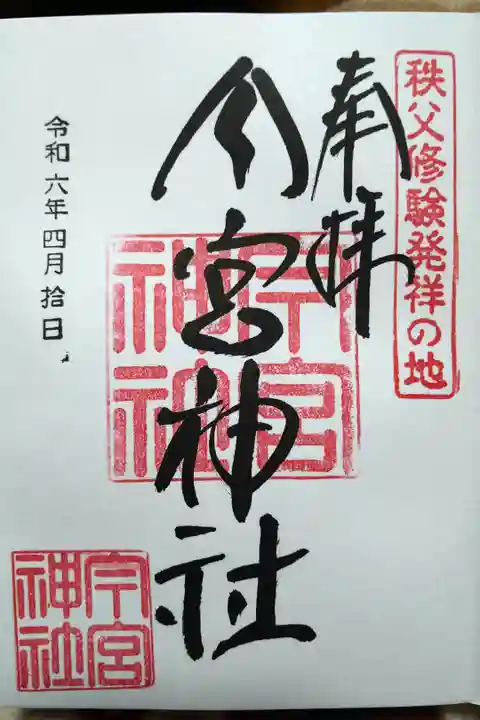 秩父修験発祥の地
奉拝
今宮神社
今宮神社
令和六年四月拾日
今宮神社